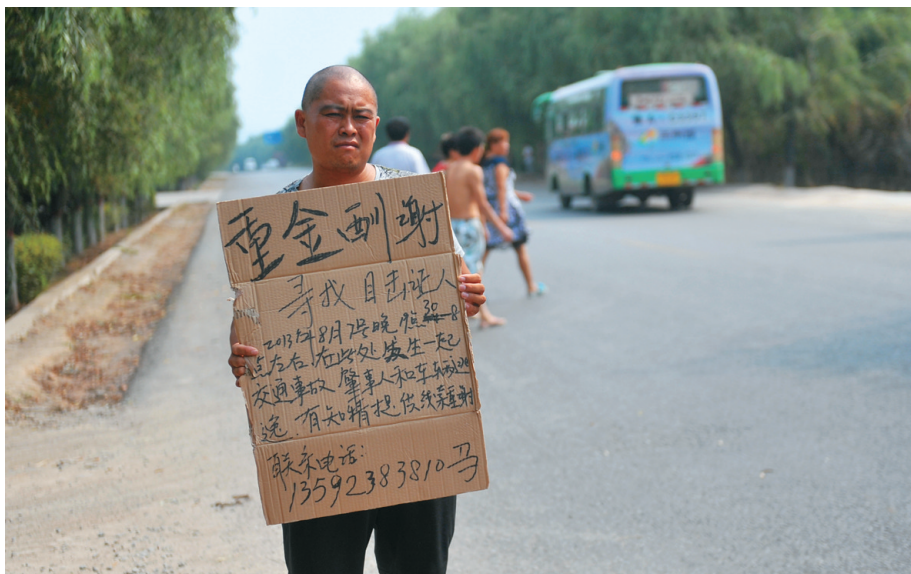 重金酬谢
寻找目击证人
2013年8月7号晚7点30-8
点左右在此处发生一起
交通事故 肇事人和车辆逃
逸.有知情提供线索重谢
联系电话:
13592383810马